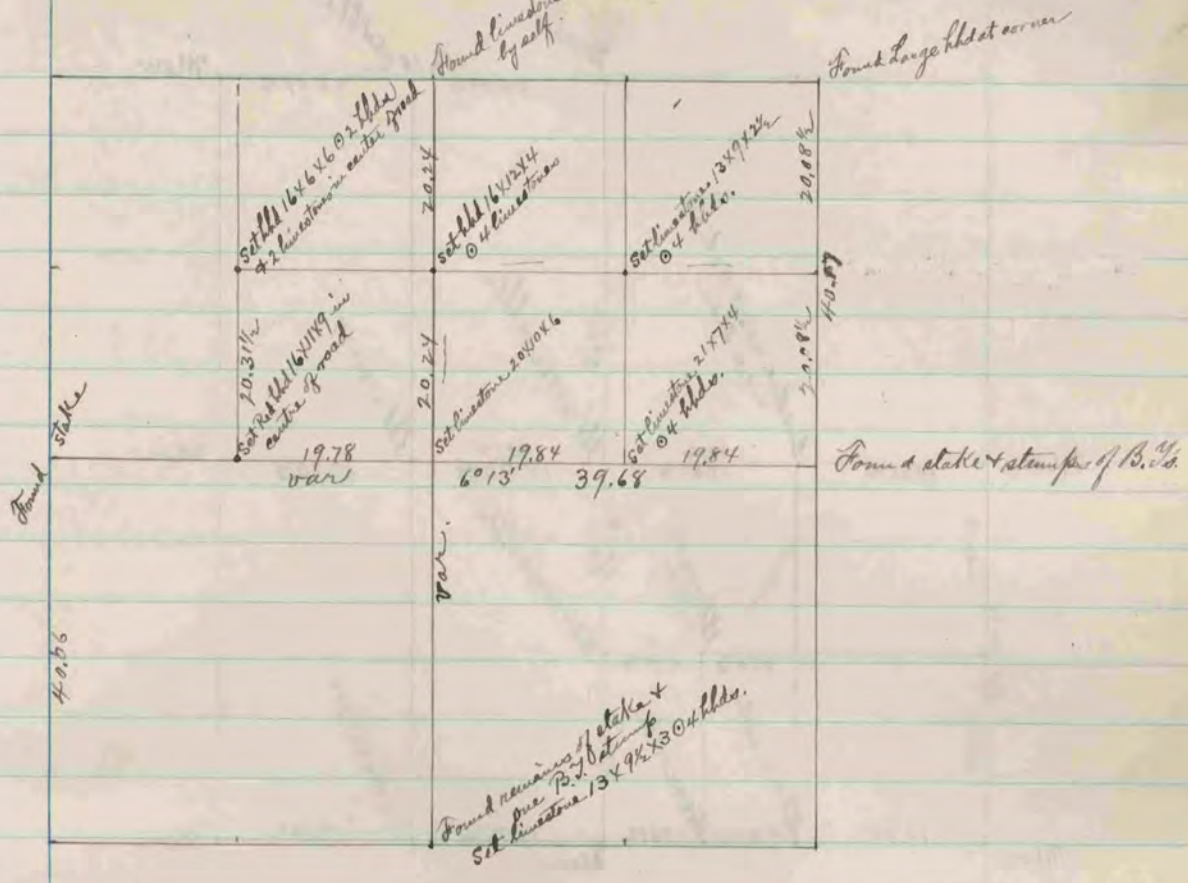 Found limestone
by self.
Found Large hhd at corner
Set hhd 16X6X6 ⊙ 2 hhds
& 2 limestones in center of road
20.24
Set hhd 16X12X4
⊙ 4 limestones
Set limestone 13X9X2½
⊙ 4 hhds.
20.08½
40.17
20.31½
Set Red hhd 16X11X9 in
centre of road
20.24
Set limestone 20X10X6
Set limestone 21X7X4
⊙ 4 hhds.
20.08½
Found stake
19.78
19.84
19.84
var
6° 13'
39.68
Found stake & stumps of B.Ts.
var.
40.66
Found remains of stake &
one B.T. stump
Set limestone 13X9½X3 ⊙ 4 hhds.